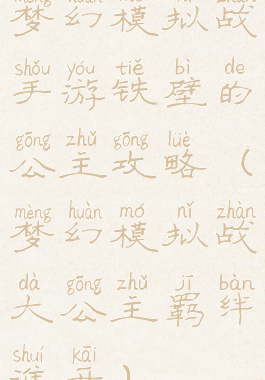 mèng huàn mó nǐ zhàn
梦幻模拟战
shǒu yóu tiě bì de
手游铁壁的
gōng zhǔ gōng lüè
公主攻略（
mèng huàn mó nǐ zhàn
梦幻模拟战
dà gōng zhǔ jī bàn
大公主羁绊
shuí kāi
谁开）